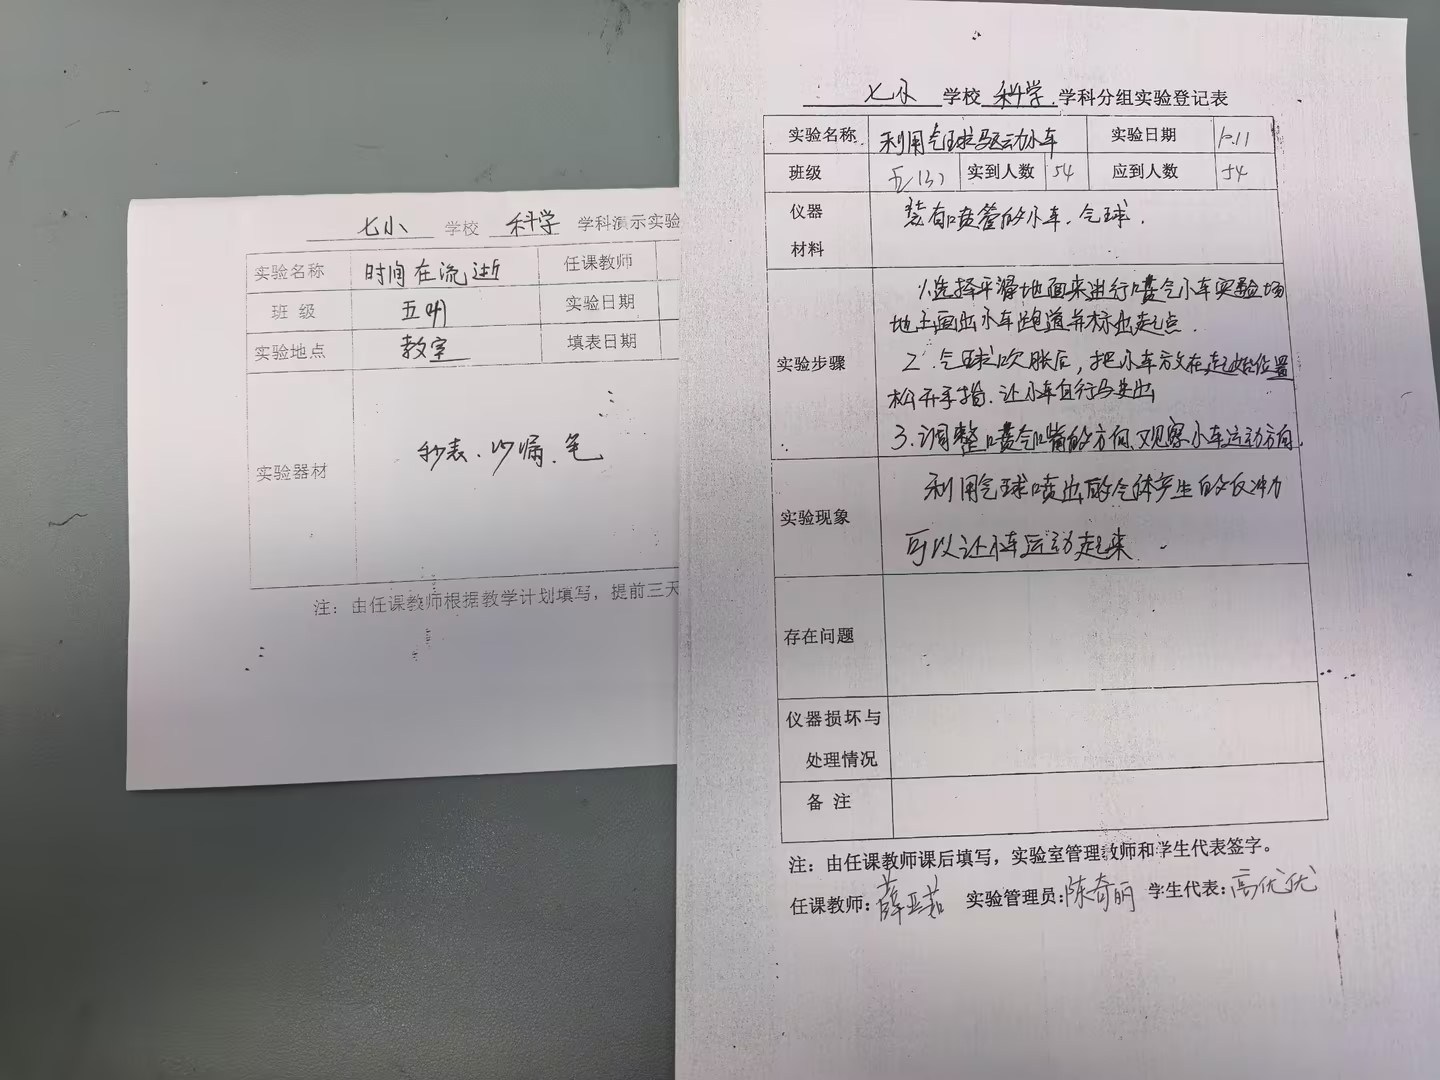 七小 学校 科学 学科演示实验
实验名称 时间在流逝 任课教师
班 级 五 实验日期
实验地点 教室 填表日期
实验器材 秒表、沙漏、笔
注：由任课教师根据教学计划填写，提前三天
七小 学校 科学 学科分组实验登记表
实验名称 利用气球驱动小车 实验日期 10.11
班级 五(3) 实到人数 54 应到人数 54
仪器
材料
装有喷管的小车、气球.
实验步骤
1.选择平滑地面来进行喷气小车实验场
地上画出小车跑道并标出起点.
2.气球吹胀后,把小车放在起始位置
松开手指.让小车自行驶出
3.调整喷气嘴的方向,观察小车运动方向
实验现象
利用气球喷出的气体产生的反冲力
可以让小车运动起来.
存在问题
仪器损坏与
处理情况
备 注
注：由任课教师课后填写，实验室管理教师和学生代表签字。
任课教师：薛亚茹 实验管理员：陈奇丽 学生代表：高优优